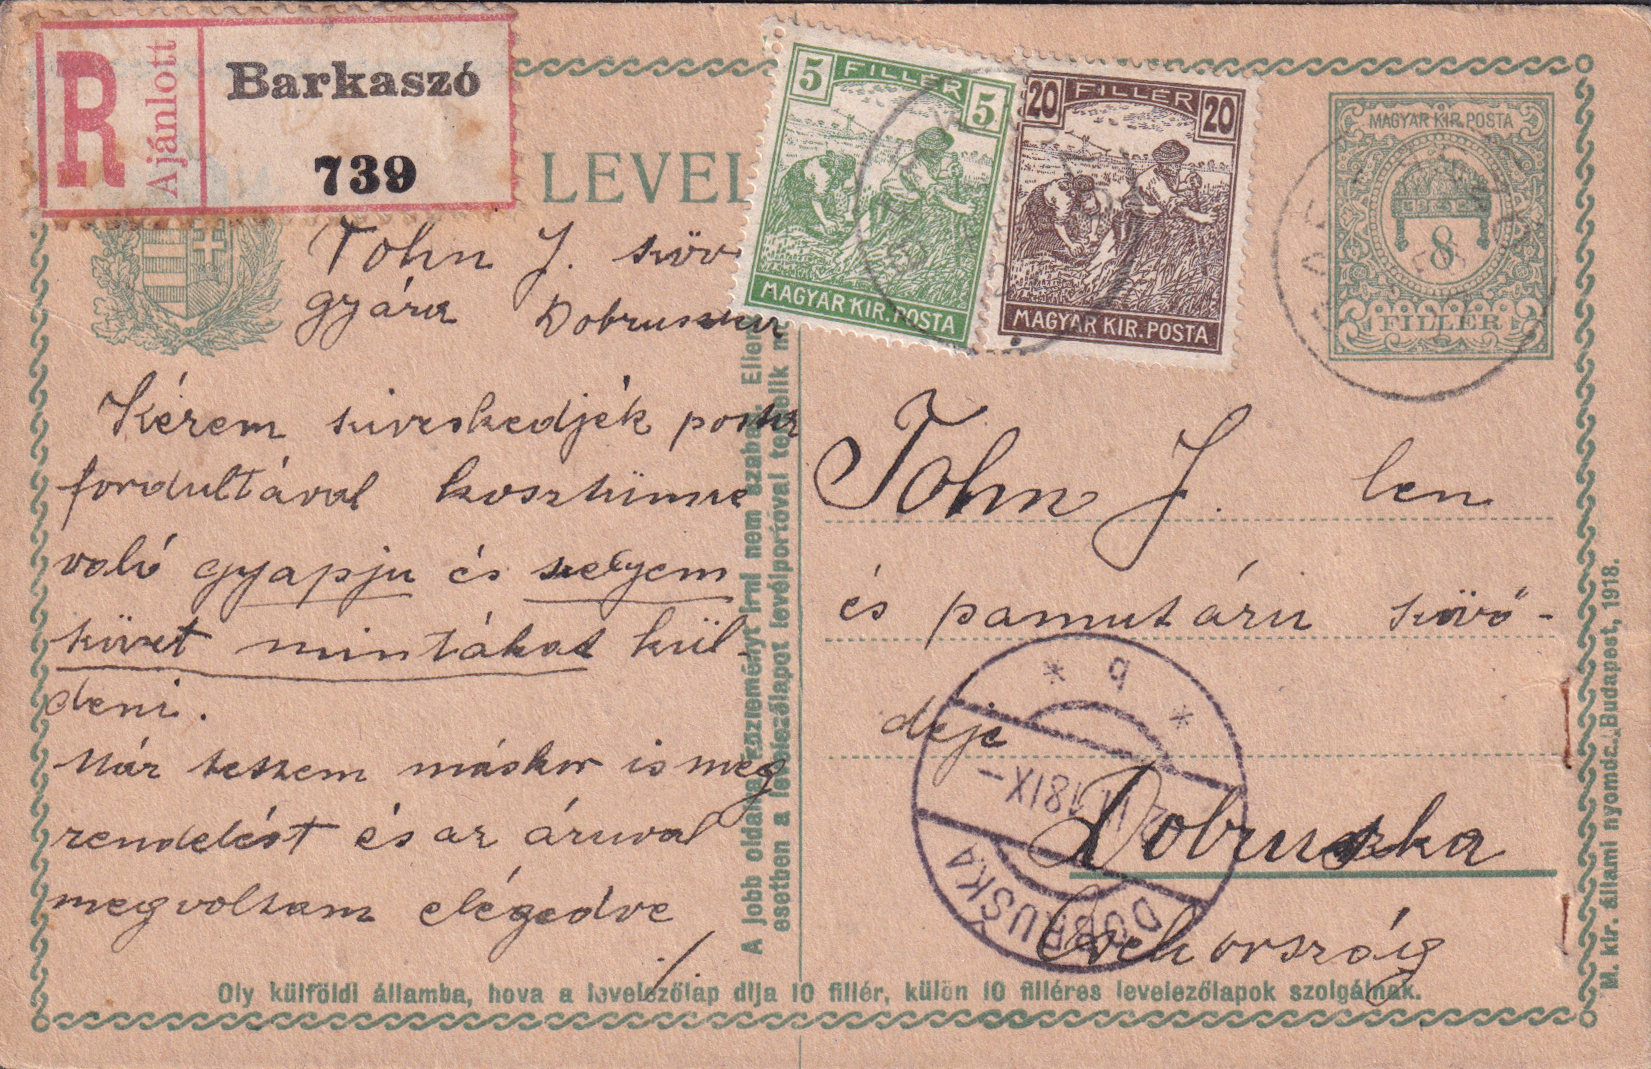 R
Ajánlott
Barkaszó
739
LEVEL
5 FILLÉR 5
MAGYAR KIR. POSTA
20 FILLÉR 20
MAGYAR KIR. POSTA
MAGYAR KIR. POSTA
8
FILLÉR
John J. szöv
gyára Dobruska
Kérem sziveskedjék posta
fordultával kosztümre
való gyapju és selyem
szövet mintákat kül-
deni.
Már tettem máskor is meg
rendelést és az áruval
megvoltam elégedve
./.
A jobb oldalra közleményt irni nem szabad. Ellen
esetben a levelezőlapot levélportóval terhelik m
John J. len
és pamutáru szövő-
deje
Dobruska
Csehország
* q *
VI 18 IX–
DOBRUŠKA
Oly külföldi államba, hova a levelezőlap dija 10 fillér, külön 10 filléres levelezőlapok szolgálnak.
M. kir. állami nyomda, Budapest, 1918.